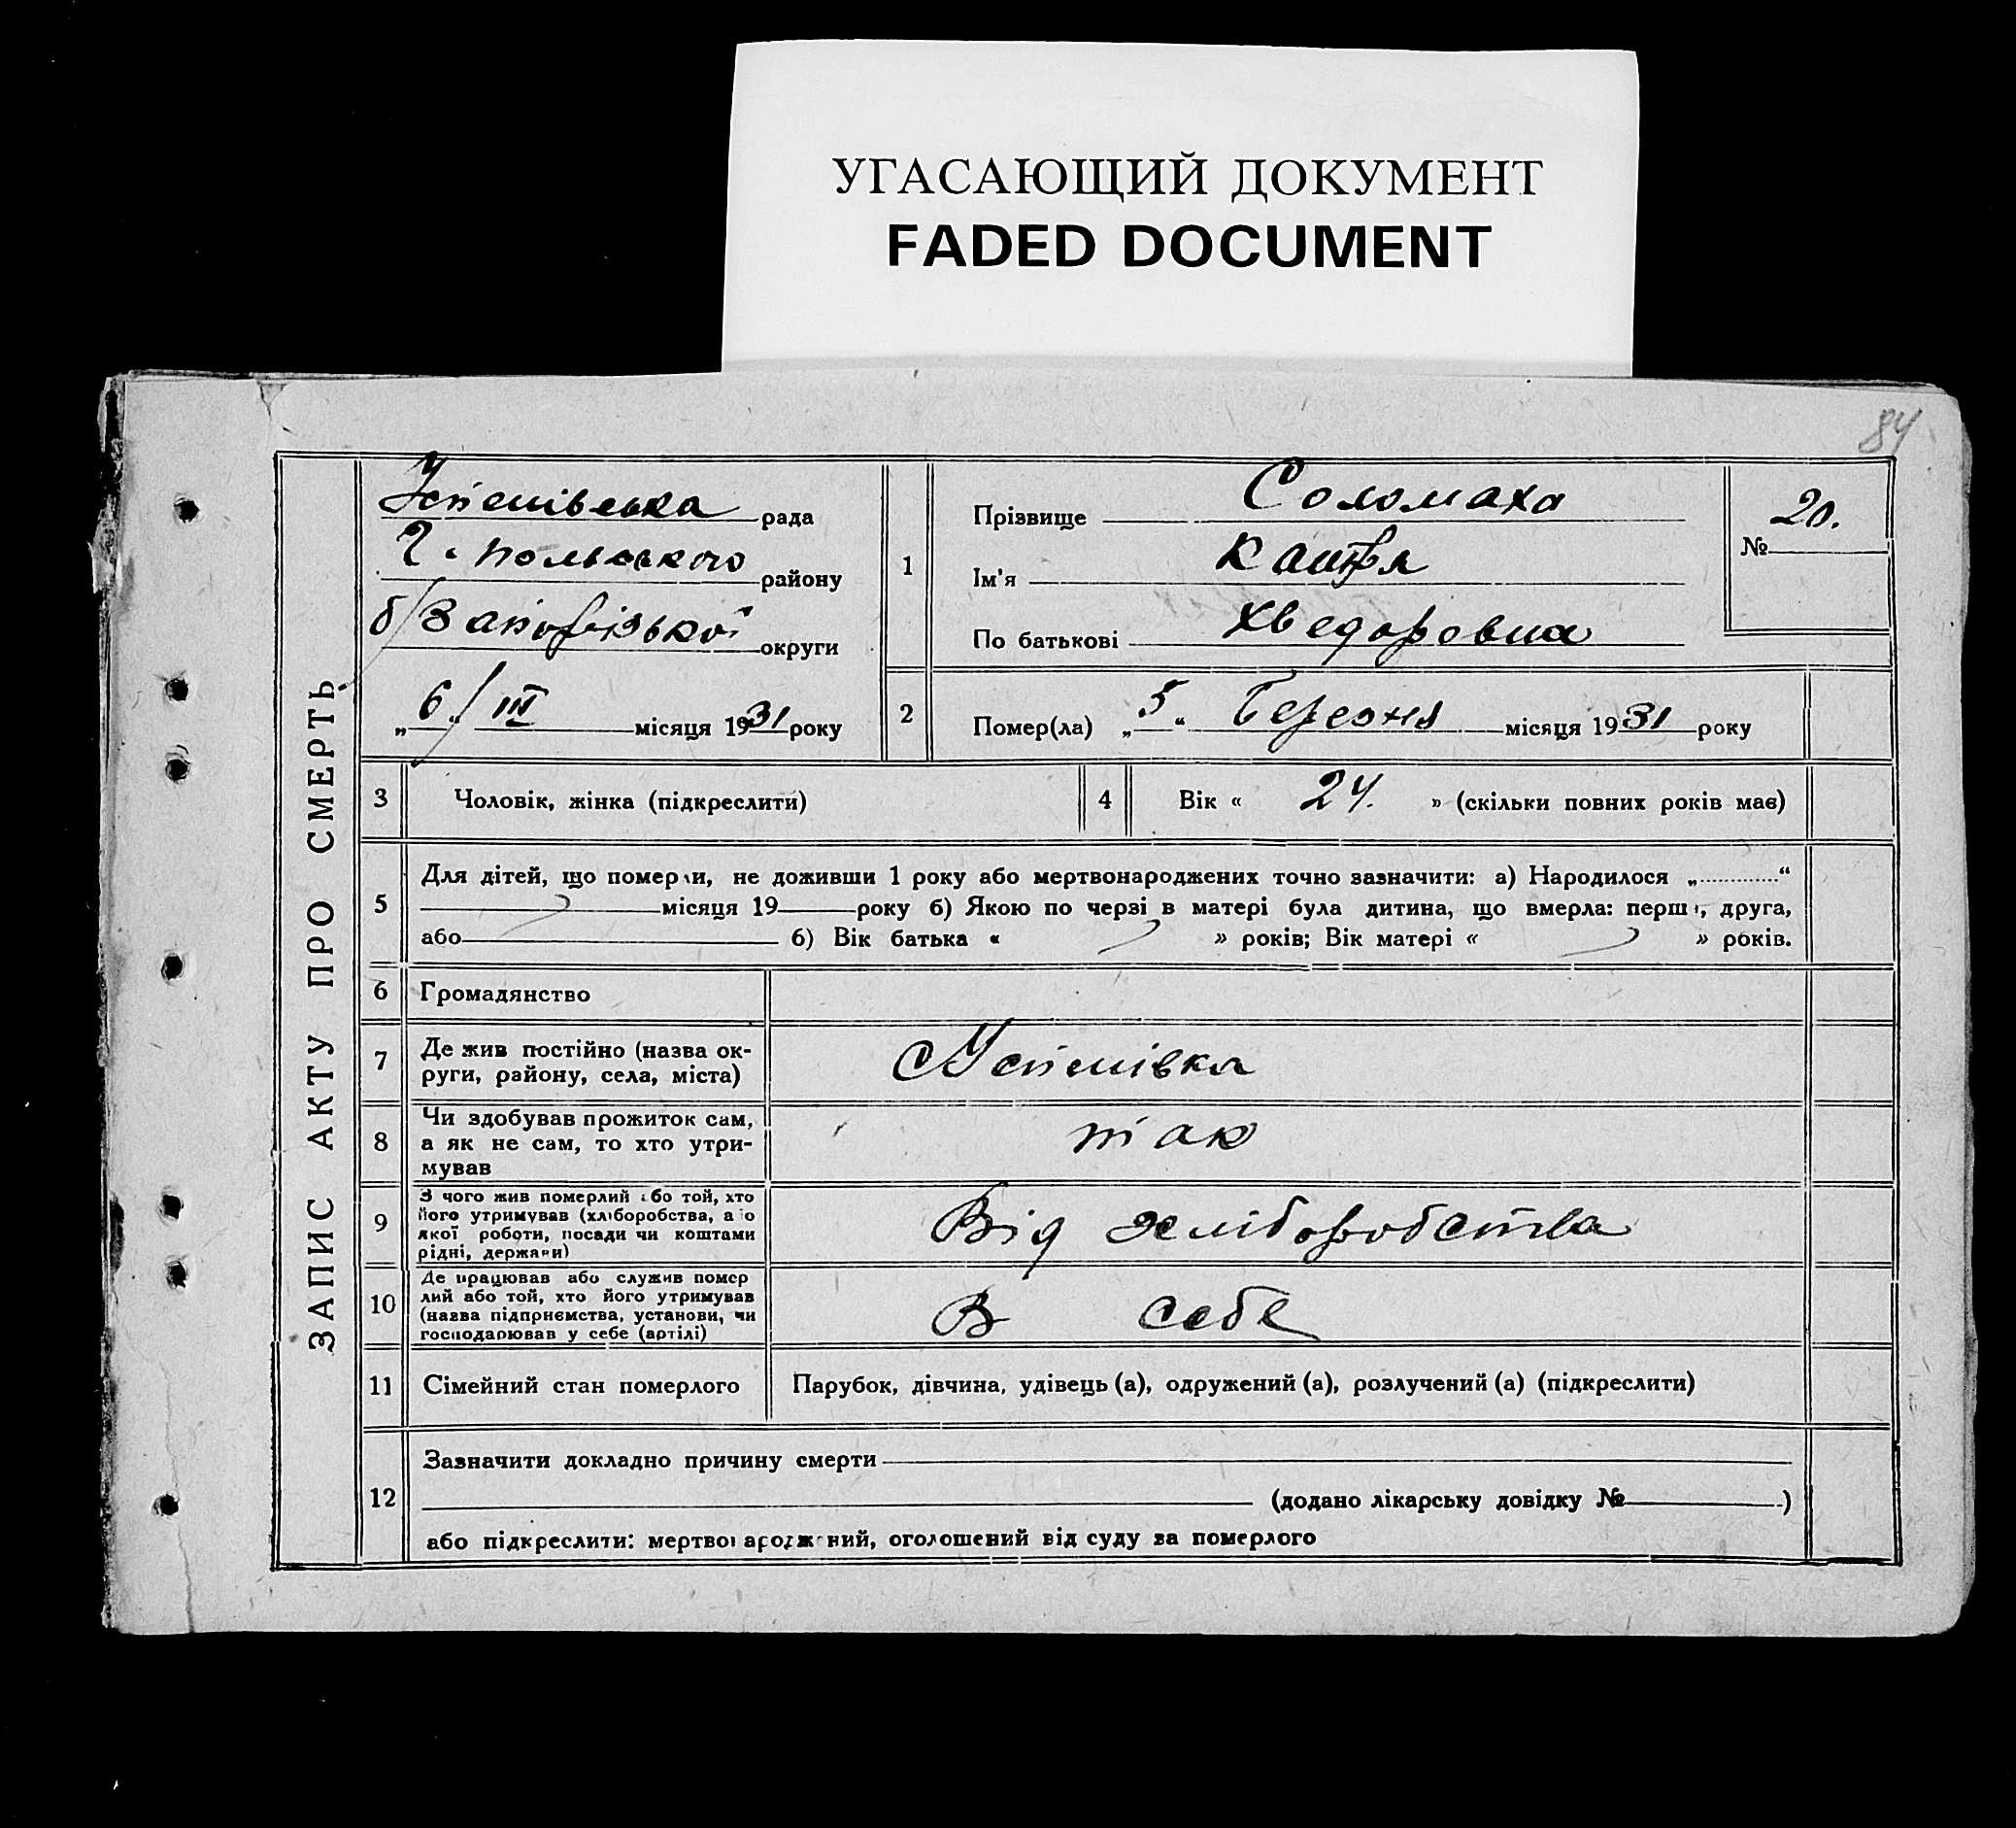 УГАСАЮЩИЙ ДОКУМЕНТ
FADED DOCUMENT
84
ЗАПИС АКТУ ПРО СМЕРТЬ
Успенівська рада
Г. польського району
б/Запорізької округи
„6„/III місяця 1931 року
1
Прізвище Соломаха
Ім'я Катря
По батькові Хведоровна
20.
№
2
Помер(ла) „5“ Березня місяця 1931 року
3 Чоловік, жінка (підкреслити)
4 Вік « 24. » (скільки повних років має)
5 Для дітей, що померли, не доживши 1 року або мертвонароджених точно зазначити: а) Народилося „............“
місяця 19 року б) Якою по черзі в матері була дитина, що вмерла: перша, друга,
або б) Вік батька « » років; Вік матері « » років.
6 Громадянство
7 Де жив постійно (назва ок-
руги, району, села, міста)
с Успенівка
8 Чи здобував прожиток сам,
а як не сам, то хто утри-
мував
так
9 З чого жив померлий або той, хто
його утримував (хліборобства, або
якої роботи, посади чи коштами
рідні, держави)
Від хліборобства
10 Де працював або служив помер
лий або той, хто його утримував
(назва підприємства, установи, чи
господарював у себе (артілі)
В себе
11 Сімейний стан померлого
Парубок, дівчина, удівець (а), одружений (а), розлучений (а) (підкреслити)
12 Зазначити докладно причину смерти
(додано лікарську довідку № )
або підкреслити: мертвонароджений, оголошений від суду за померлого